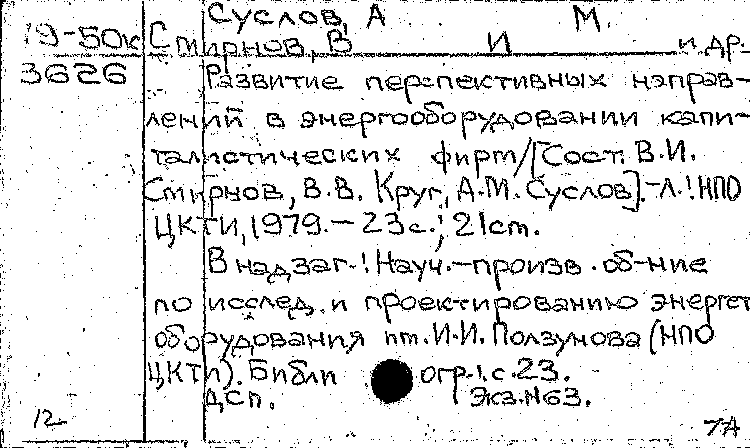 Суслов, А М.
19-50к Смирнов, В И и др.
3626 Развитие перспективных направ-
лений в энергооборудовании капи-
талистических фирм/[Сост. В.И.
Смирнов, В.В. Круг, А.М. Суслов].-Л.: НПО
ЦКТИ, 1979.- 23с.; 21см.
В надзаг.: Науч.-произв. об-ние
по исслед. и проектированию энергет
оборудования им. И.И. Ползунова (НПО
ЦКТИ). Библи огр.: с. 23.
ДСП. Экз.N63.
12